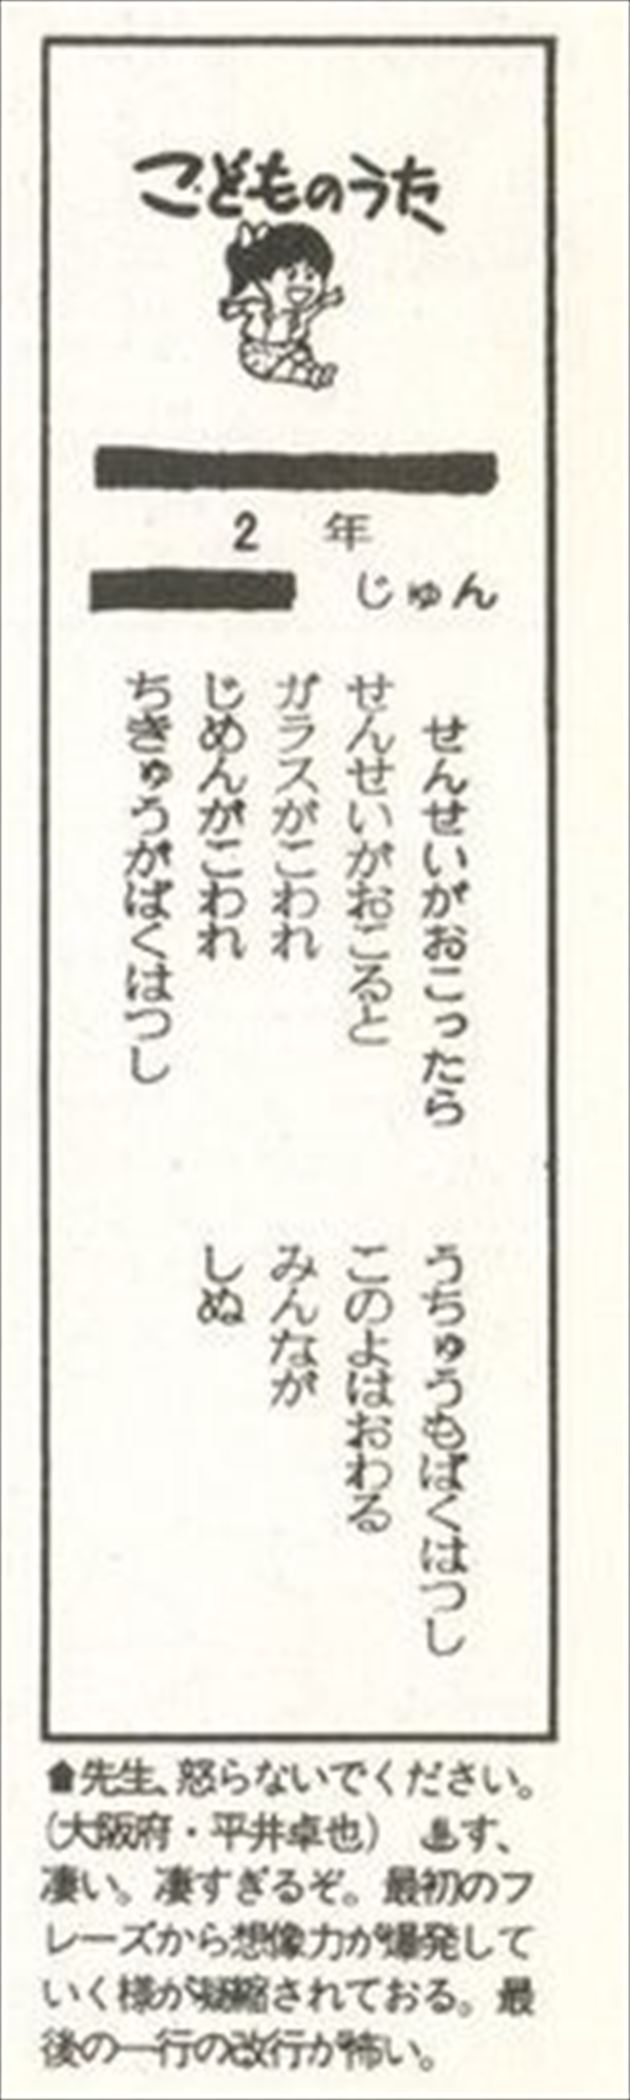 こどものうた
2 年
じゅん
せんせいがおこったら
せんせいがおこると
ガラスがこわれ
じめんがこわれ
ちきゅうがばくはつし
うちゅうもばくはつし
このよはおわる
みんなが
しぬ
先生、怒らないでください。
(大阪府・平井卓也) す、
凄い。凄すぎるぞ。最初のフ
レーズから想像力が爆発して
いく様が凝縮されておる。最
後の一行の改行が怖い。